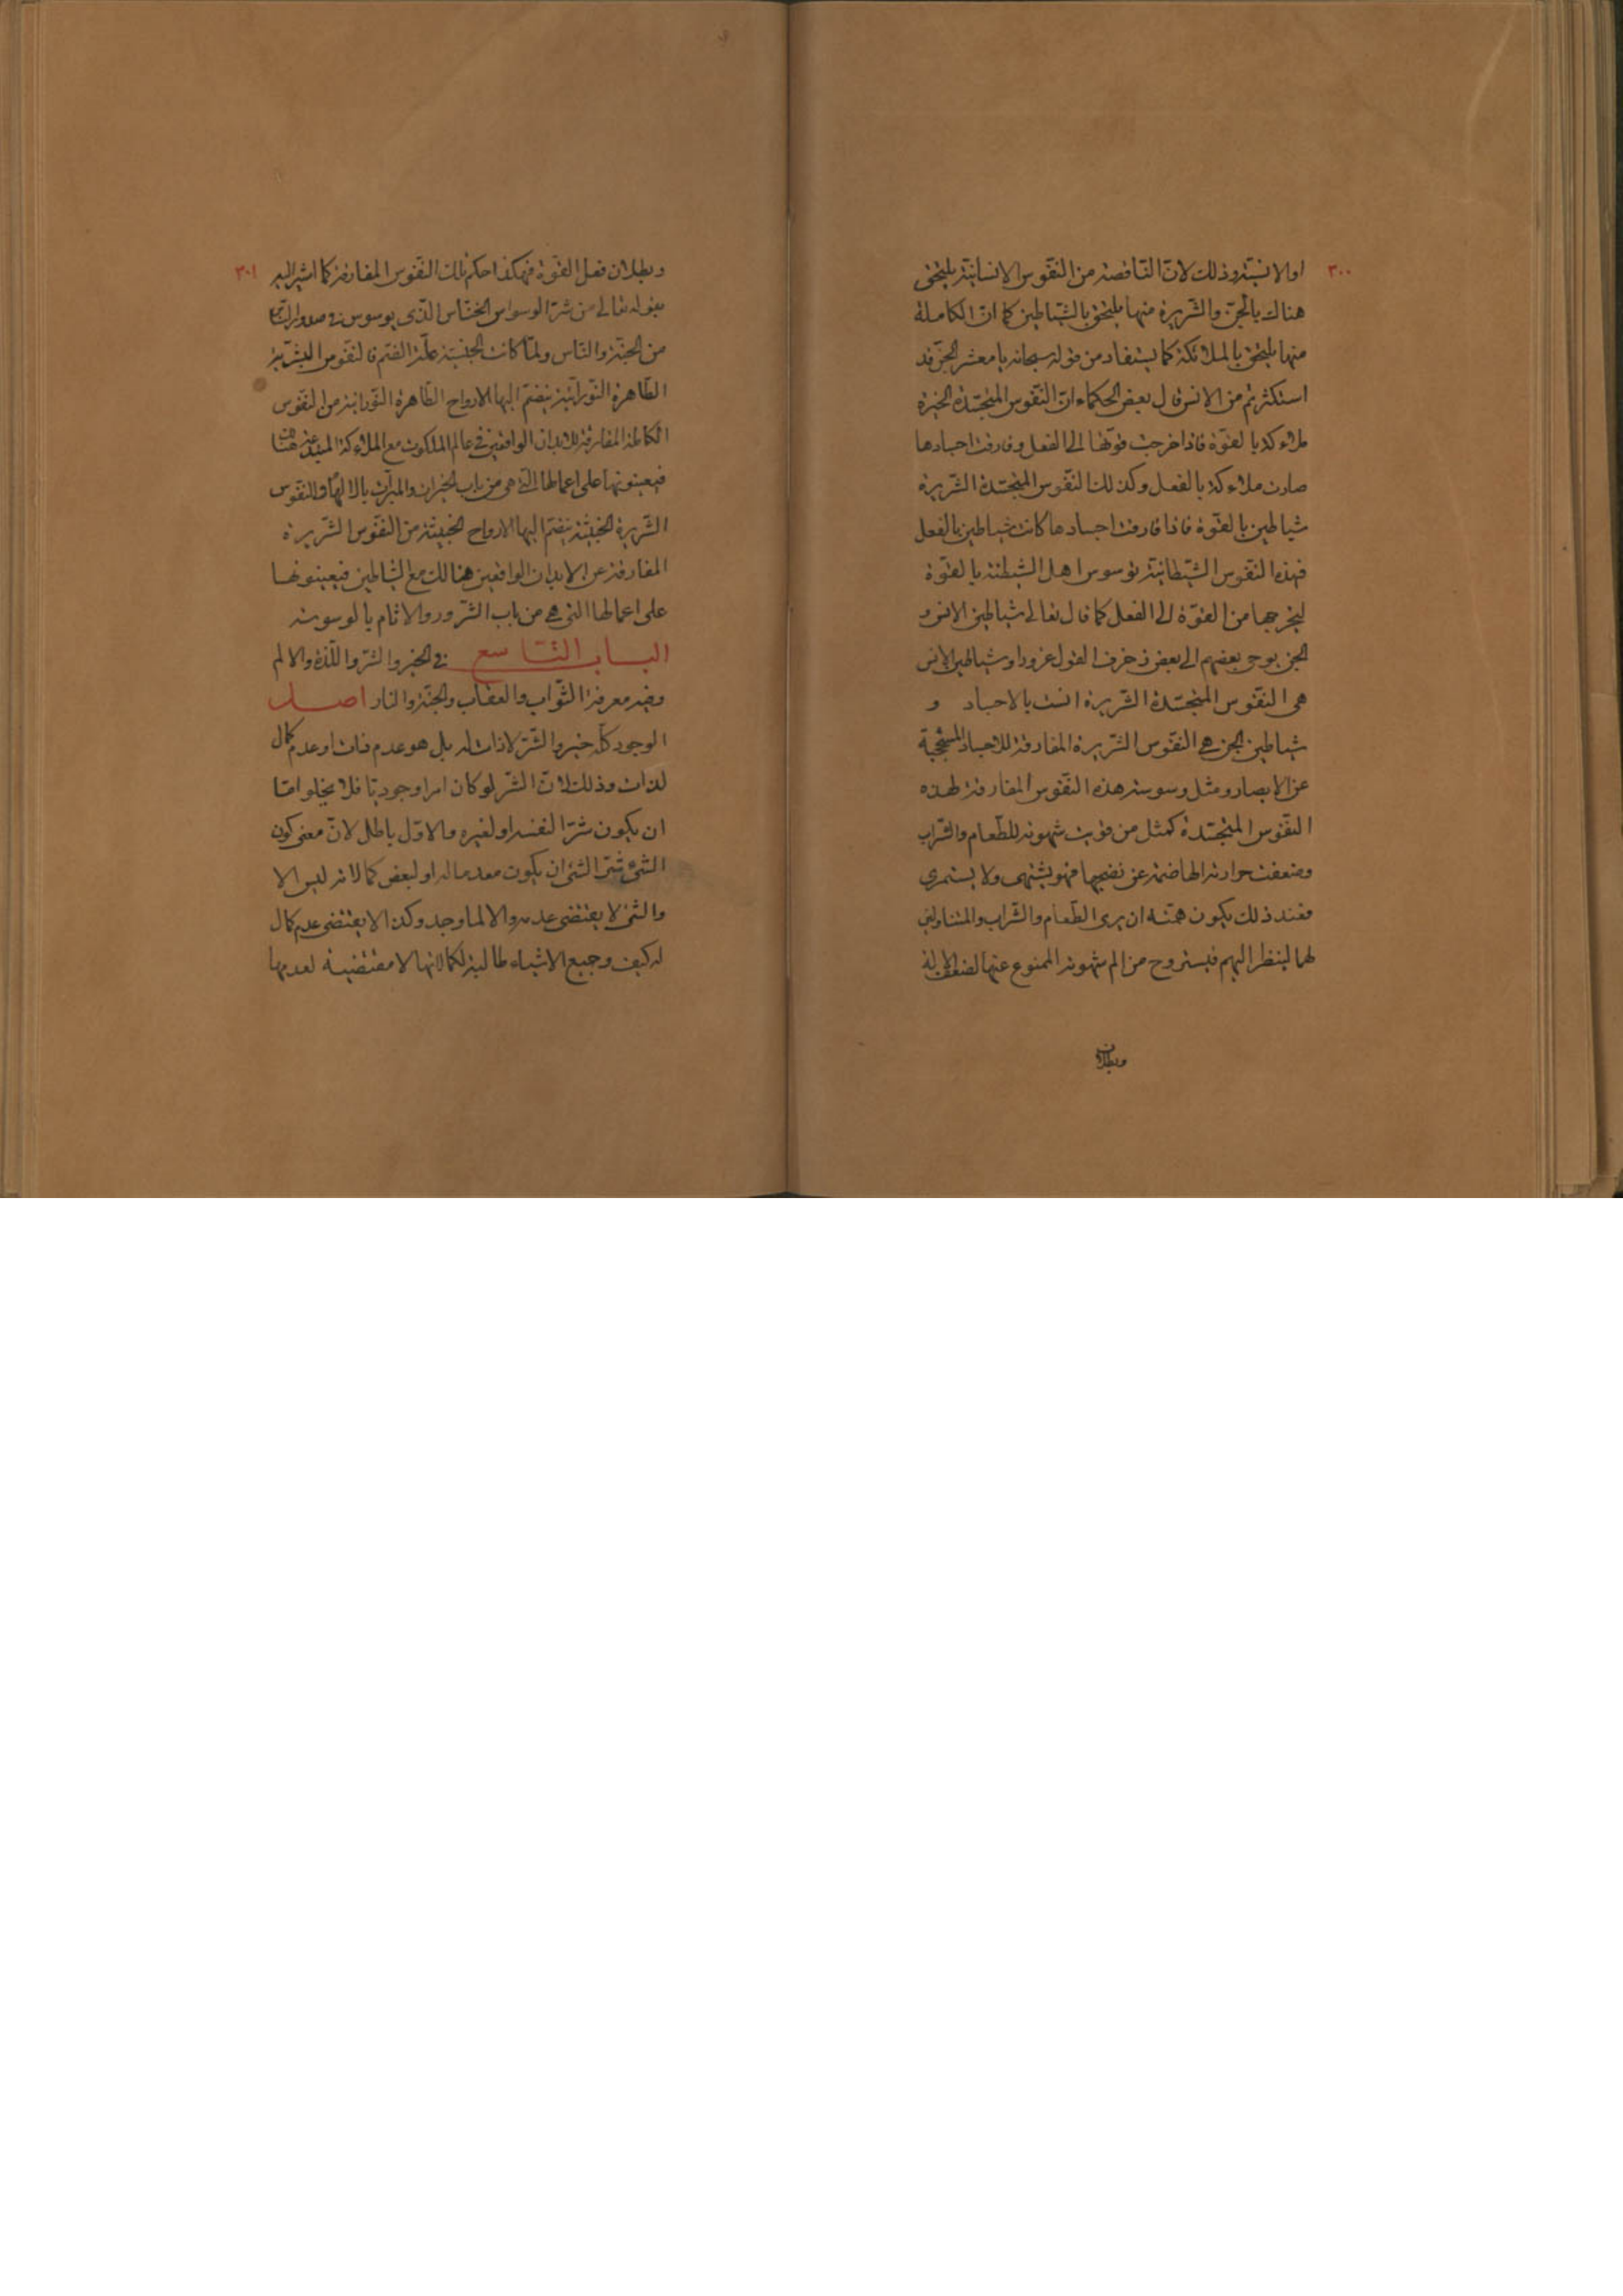 ٣٠٠
او الانسیة وذلك لان الناقصة من النفوس الانسانیة یلتحق
هناك بالجن والشریرة منها یلتحق بالشیاطین كما ان الكاملة
منها یلتحق بالملائكة كما یستفاد من قوله سبحانه یا معشر الجن قد
استكثرتم من الانس قال بعض الحكماء ان النفوس المتجسدة الخیرة
ملاءكة بالقوة فاذا خرجت قوتها الی الفعل وفارقت اجسادها
صارت ملاءكة بالفعل وكذلك النفوس المتجسدة الشریرة
شیاطین بالقوة فاذا فارقت اجسادها كانت شیاطین بالفعل
فهذه النفوس الشیطانیة توسوس اهل الشیطنة بالقوة
لیخرجها من القوة الی الفعل كما قال تعالی شیاطین الانس و
الجن یوحی بعضهم الی بعض زخرف القول غرورا وشیاطین الانس
هی النفوس المتجسدة الشریرة انست بالاجساد و
شیاطین الجن هی النفوس الشریرة المفارقة للاجساد المحتجبة
عن الابصار ومثل وسوسة هذه النفوس المفارقة لهذه
النفوس المتجسدة كمثل من قویت شهوته للطعام والشراب
وضعفت حرارته الهاضمة عن نضجها فهو یشتهی ولا یستمری
فعند ذلك یكون همته ان یری الطعام والشراب والمتناولین
لهما لینظر الیهم فیستروح من الم شهوته الممنوع عنها لضعف الالة
وبطلان
٣٠١
وبطلان فعل القوة فهكذا حكم تلك النفوس المفارقة كما اشیر الیه
بقوله تعالی من شر الوسواس الخناس الذی یوسوس فی صدور الناس
من الجنة والناس ولما كانت الجنسیة علة الضم فالنفوس البشریة
الطاهرة النورانیة ینضم الیها الارواح الطاهرة النورانیة من النفوس
الكاملة المفارقة للابدان الواقعین فی عالم الملكوت مع الملاءكة
فیعینونها علی اعمالها التی هی من باب الخیرات والمبرات بالالهام والنفوس
الشریرة الخبیثة ینضم الیها الارواح الخبیثة من النفوس الشریرة
المفارقة عن الابدان الواقعین هنالك مع الشیاطین فیعینونها
علی اعمالها التی هی من باب الشرور والاثام بالوسوسة
الباب التاسع فی الخیر والشر واللذة والالم
وفیه معرفة الثواب والعقاب والجنة والنار اصل
الوجود كله خیر والشر لا ذات له بل هو عدم ذات او عدم كمال
لذات وذلك لان الشر لو كان امرا وجودیا فلا یخلو اما
ان یكون شرا لنفسه او لغیره والاول باطل لان معنی كون
الشیء شر الشیء ان یكون معدما له او لبعض كمالاته لیس الا
والشیء لا یقتضی عدمه والا لما وجد وكذا لا یقتضی عدم كمال
له كیف وجمیع الاشیاء طالبة لكمالاتها لا مقتضیة لعدمها